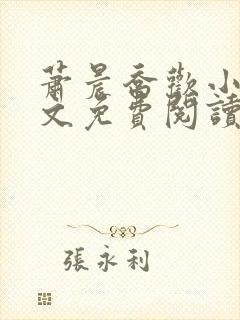 蕭晨喬歡小
文免費閱讀
張永利